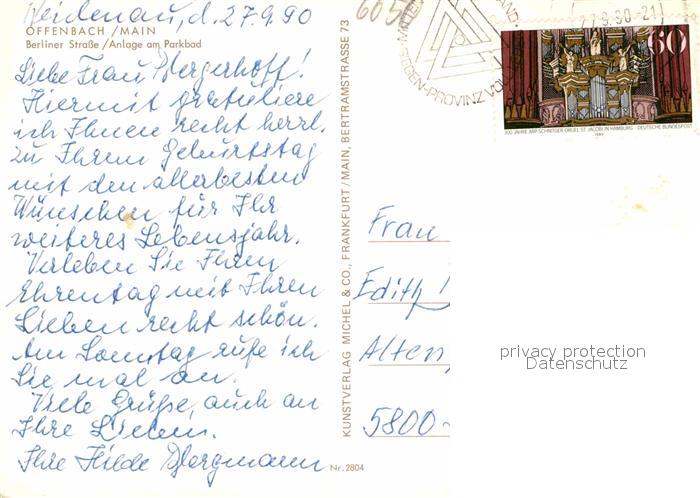 Heidenau, d. 27.9.90
OFFENBACH / MAIN
Berliner Straße / Anlage am Parkbad
Liebe Frau
Hiermit gratuliere
ich Ihnen recht herzl.
zu Ihrem Geburtstag
mit den allerbesten
Wünschen für Ihr
weiteres Lebensjahr.
Verleben Sie Ihren
Ehrentag mit Ihren
Lieben recht schön.
Am Sonntag rufe ich
Sie mal an.
Viele Grüße, auch an
Ihre Lieben.
Ihre Hilde Bergmann
Nr. 2804
KUNSTVERLAG MICHEL & CO., FRANKFURT/MAIN, BERTRAMSTRASSE 73
PROVINZ
9.90-21
60
300 JAHRE ARP-SCHNITGER-ORGEL ST. JACOBI IN HAMBURG · DEUTSCHE BUNDESPOST
1989
Frau
Edith
Alten
5800-
privacy protection
Datenschutz